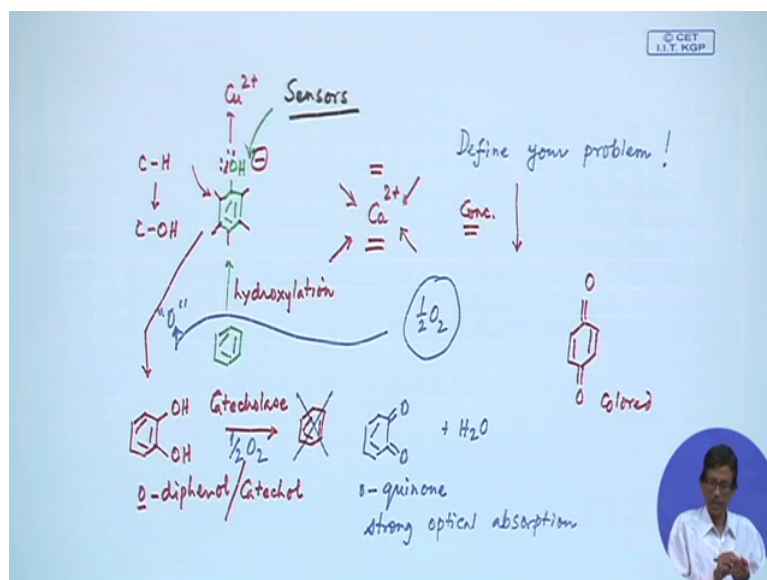 © CET
I.I.T. KGP
Cu2+
Sensors
Define your problem !
C-H
:ÖH
-
=
C-OH
Ca2+
=
Conc.
=
hydroxylation
"O"
1/2O2
O
O
Colored
OH
OH
Catecholase
1/2O2
O
O
+ H2O
O-diphenol/Catechol
O-quinone
strong optical absorption